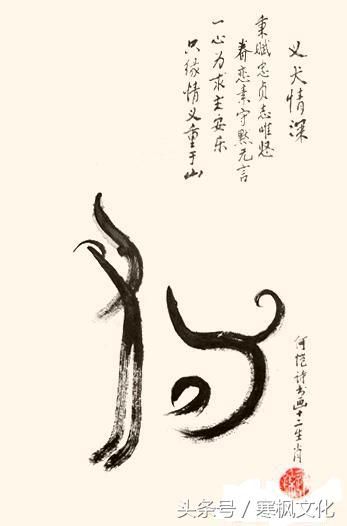 义犬情深
秉赋忠贞志唯坚
眷恋素守默无言
一心为求主安乐
只缘情义重于山
狗
何恺诗书画十二生肖
头条号 / 寒枫文化